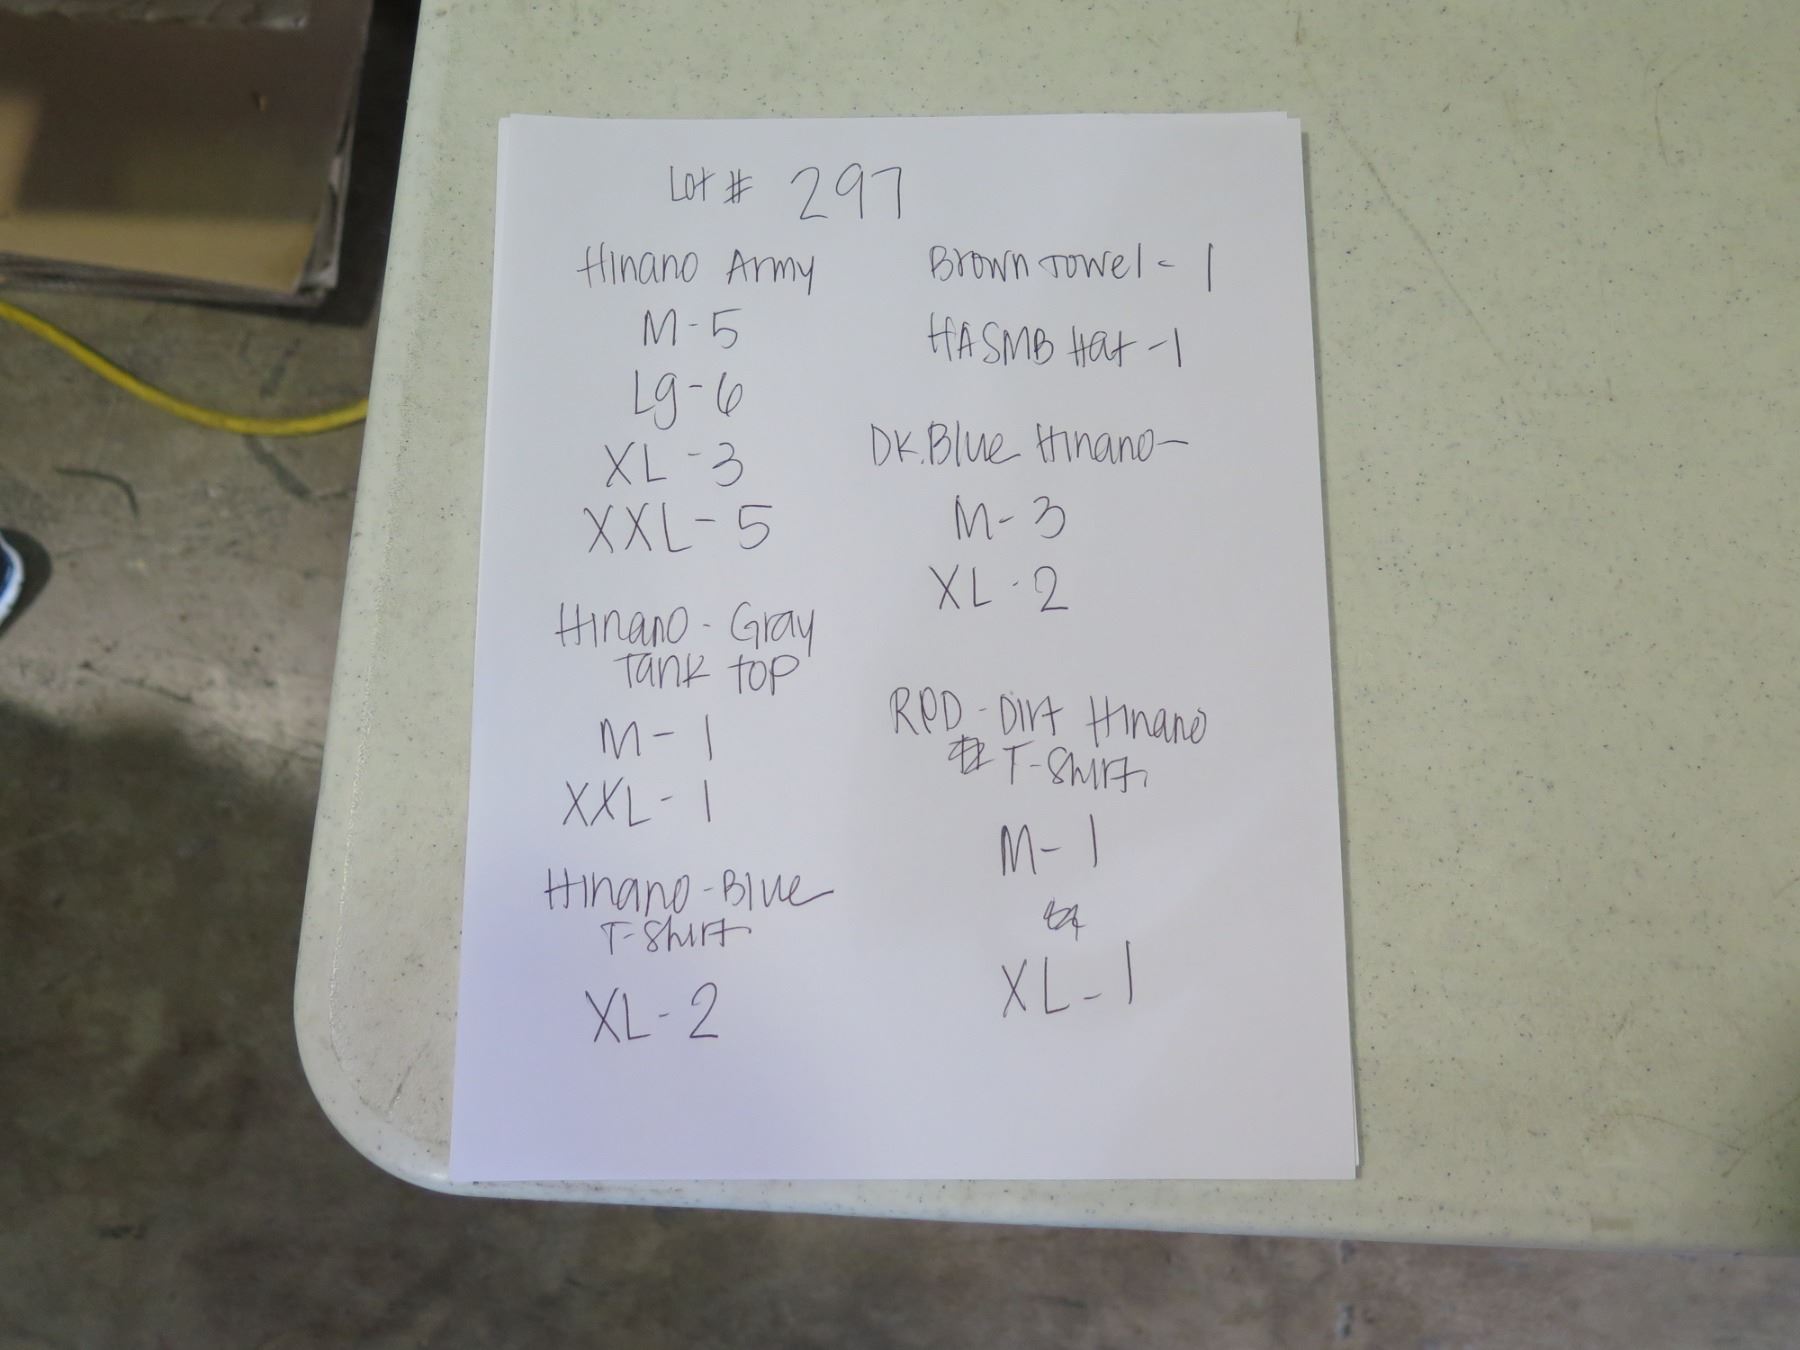 Lot # 297
Hinano Army
M-5
Lg-6
XL-3
XXL-5
Hinano-Gray
Tank top
M-1
XXL-1
Hinano-Blue
T-Shirt
XL-2
Brown Towel-1
HASMB Hat-1
DK.Blue Hinano-
M-3
XL-2
RED-Dirt Hinano
T-Shirt
M-1
XL-1